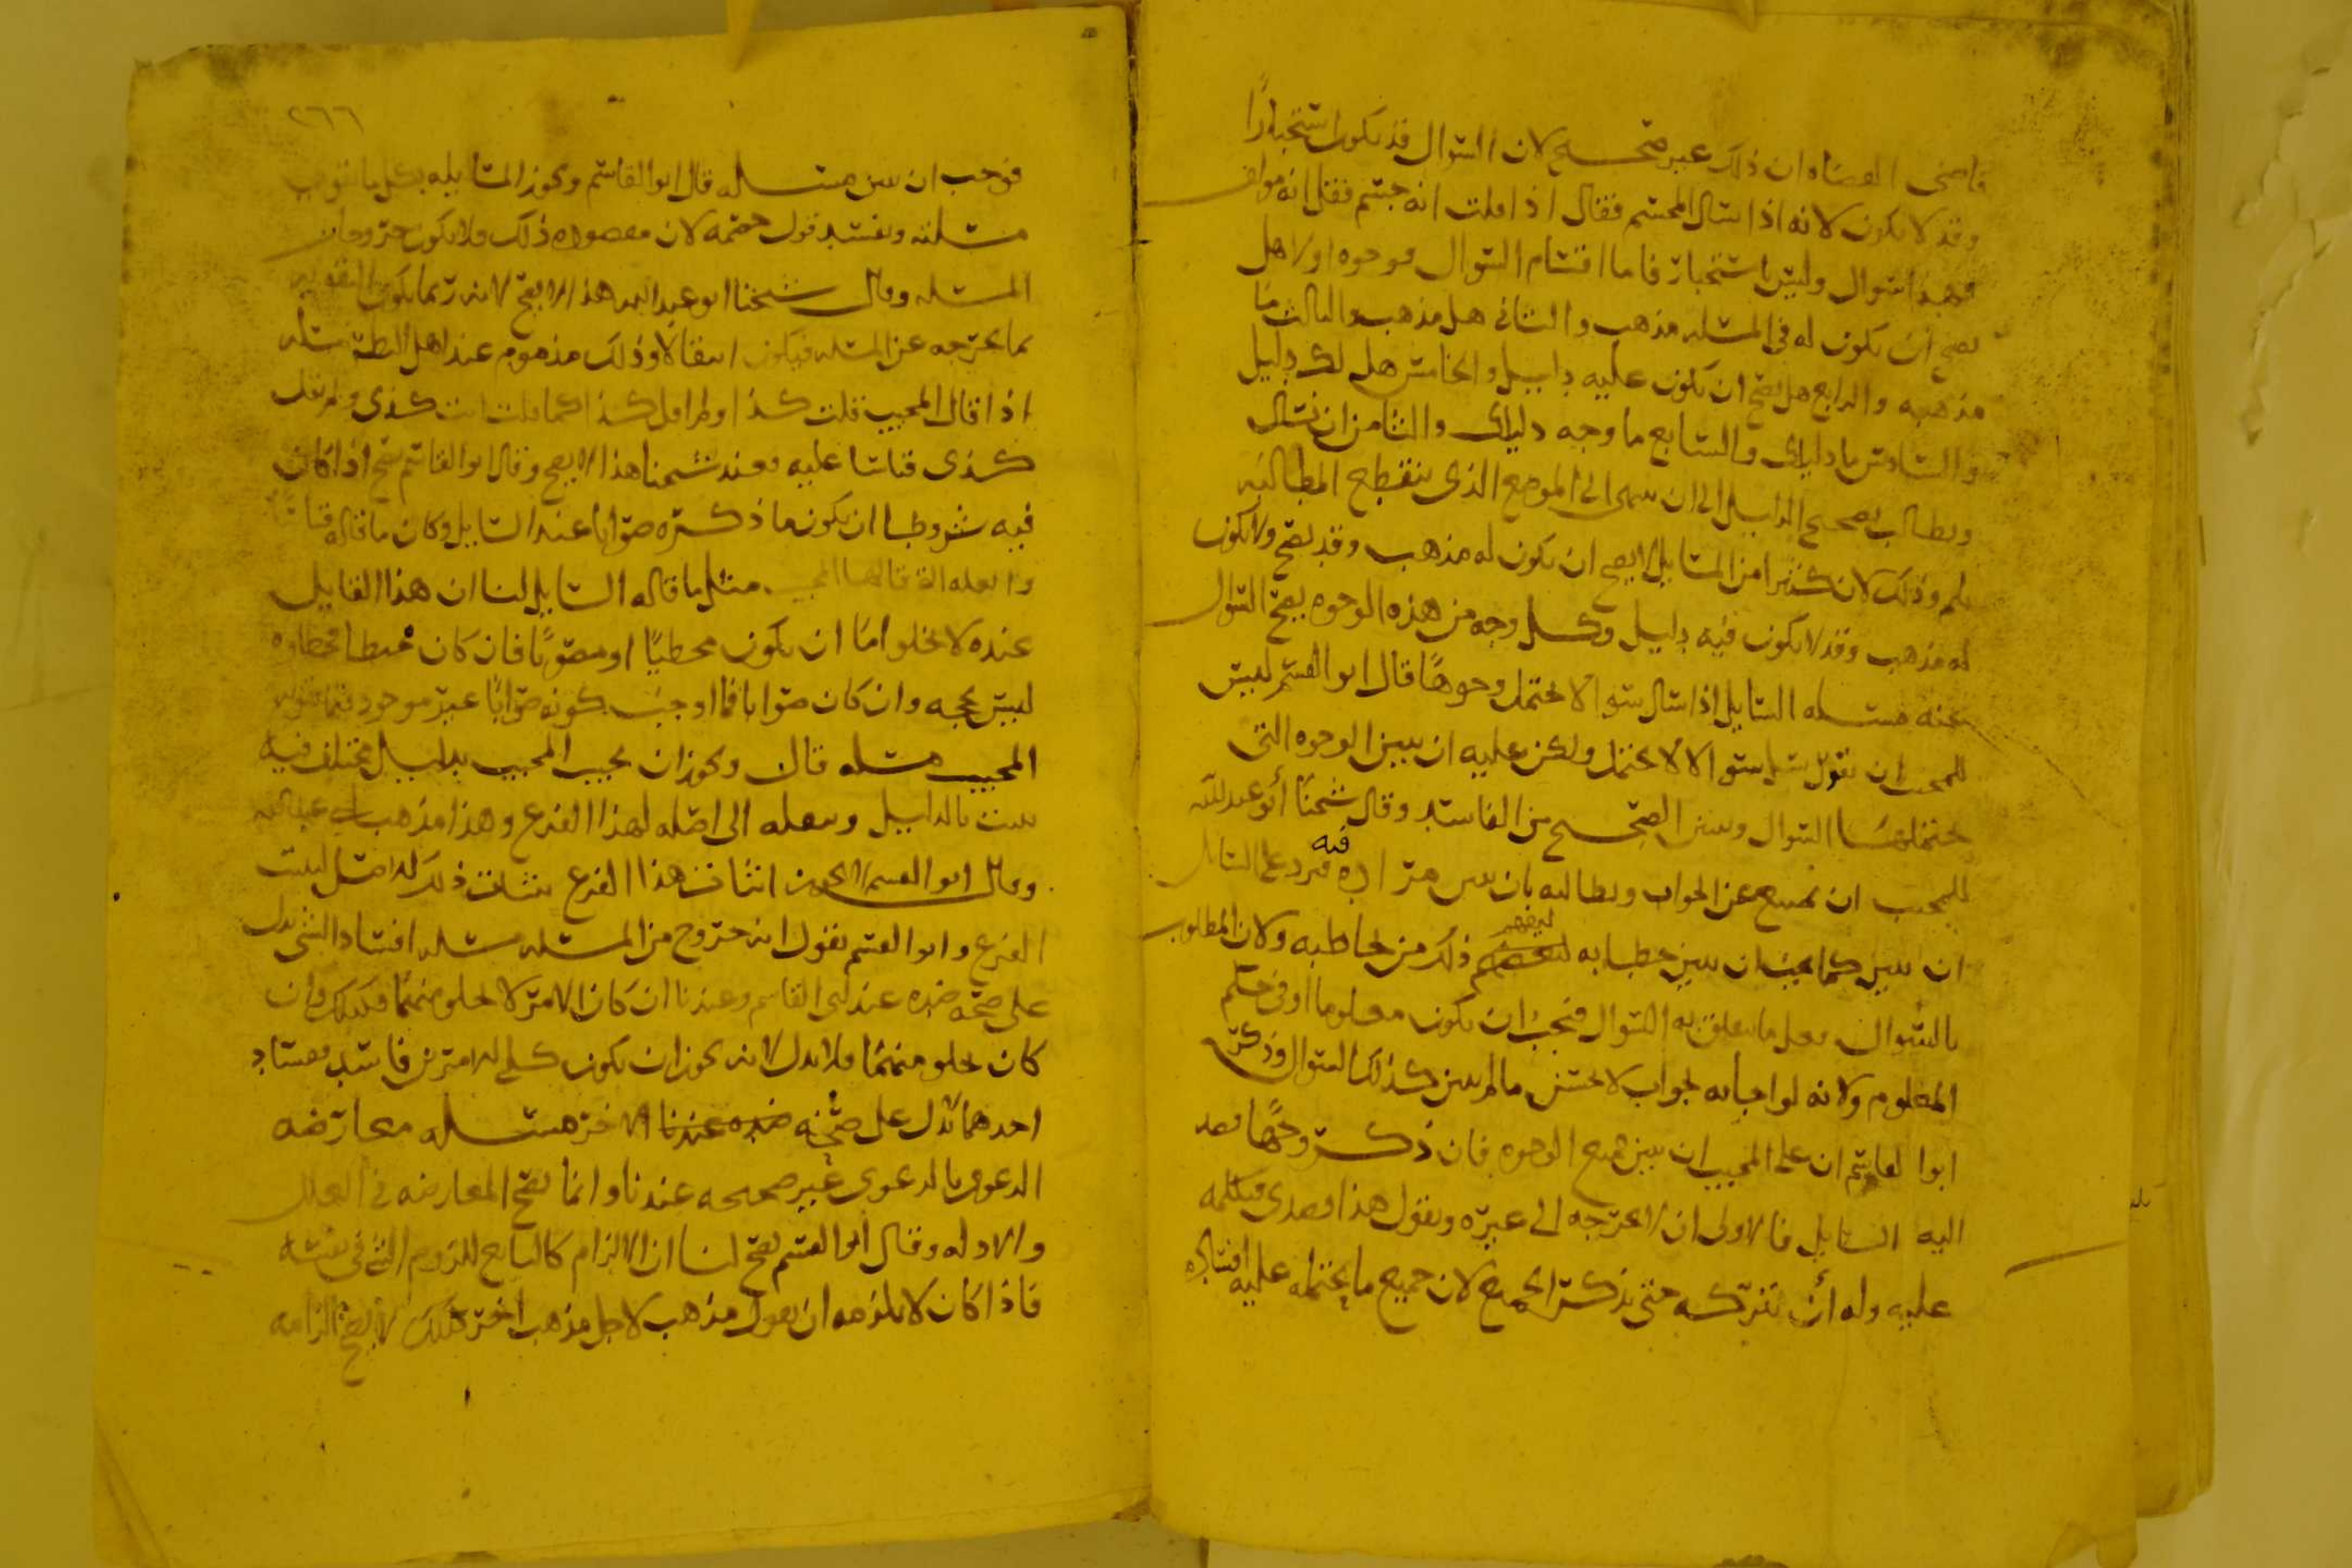 قاضى القضاه ان ذلك غير صحيح لان السوال قد يكون استخبارًا
وقد لا يكون لانه اذا سال المجسم فقال اذا قلت انه جسم فقل انه مولف
فهذا سوال وليس باستخبار فاما اقسام السوال فوجوه اولا هل
يصح ان يكون له فى المسله مذهب والثانى هل مذهب والثالث ما
مذهبه والرابع هل يصح ان يكون عليه دليل والخامس هل لك دليل
والسادس ما دليلك والسابع ما وجه دليلك والثامن ان نسال
ويطالب بصحيح الدليل الى ان ينتهى الى الموضع الذى ينقطع المطالبه
بلم وذلك لان كثيرا من المسايل لا يصح ان يكون له مذهب وقد يصح ولا يكون
له مذهب وقد لا يكون فيه دليل وكل وجه من هذه الوجوه يصح السوال
عنه مسله السايل اذا سال سوالا محتمل وجوهًا قال ابو القسم ليس
للمجيب ان يقول سل سوالا لا يحتمل ولكن عليه ان يبين الوجوه التى
يحتملها السوال ويبين الصحيح من الفاسد وقال شيخنا أبو عبد الله
للمجيب ان يمتنع عن الجواب ويطالبه بان يبين مراده فيه فيرد على السايل
ان يبين كما يجب ان يبين خطابه ليفهم ذلك من يخاطبه ولان المطلوب
بالسوال فعل ما يتعلق به السوال فيجب ان يكون معلوما او فى حكم
المعلوم ولانه لو اجابه بجواب لا يحسن ما لم يبين كذلك السوال وذكر
ابو القاسم ان على المجيب ان يبين جميع الوجوه فان ذكر وجهًا قصد
اليه السايل فالاولى ان لا يخرجه الى غيره ويقول هذا قصدى فيكلمه
عليه وله أن يتركه حتى يذكر الجميع لان جميع ما يحتمله عليه افساده
٢٦٦
فوجب ان يبين مسله قال ابو القاسم ويجوز المسايله بكل ما يقوى
مسلته ويفسد قول خصمه لان مقصوده ذلك فلا يكون خروجا من
المسله وقال شيخنا ابو عبد الله هذا لا يصح لانه ربما يكون التقويه
بما يخرجه عن المسله فيكون انتقالا وذلك مذموم عند اهل النظر مسله
اذا قال المجيب قلت كذا ولم اقل كذا كما قلت انت كذى ولم تقل
كذى قياسا عليه فعند شيخنا هذا لا يصح وقال ابو القاسم يصح اذا كان
فيه شروط ان يكون ما ذكره صوابا عند السايل وكان ما قاله قياسًا
والعله التى قالها المجيب مثل ما قاله السايل لنا ان هذا القايل
عنده لا يخلو اما ان يكون مخطيًا او مصوبًا فان كان مخطيا فخطاوه
ليس بحجه وان كان صوابا فما اوجب كونه صوابًا غير موجود فيما يقوله
المجيب مسله قال ويجوز ان يجيب المجيب بدليل مختلف فيه
يثبت بالدليل وينقله الى اصله لهذا الفرع وهذا مذهب ابى عبد الله
وقال ابو القسم لا يجوز اثبات هذا الفرع باثبات ذلك لم اصل ليثبت
الفرع وابو القسم يقول انه خروج من المسله مسله افساد الشى يدل
على صحه ضده عند ابى القاسم وعندنا ان كان الامر لا يخلو منهما فكذلك وان
كان يخلو منهما فلا يدل لانه يجوز ان يكون كلى الامرين فاسد ففساد
احدهما لا يدل على صحه ضده عندنا الاخر مسله معارضه
الدعوى بالدعوى غير صحيحه عندنا وانما يصح المعارضه فى العلل
والادله وقال ابو القسم يصح لنا ان الالزام كالتابع للزوم الشى فى نفسه
فاذا كان لا يلزمه ان يقول مذهب لاجل مذهب اخر فكذلك لا يصح الزامه